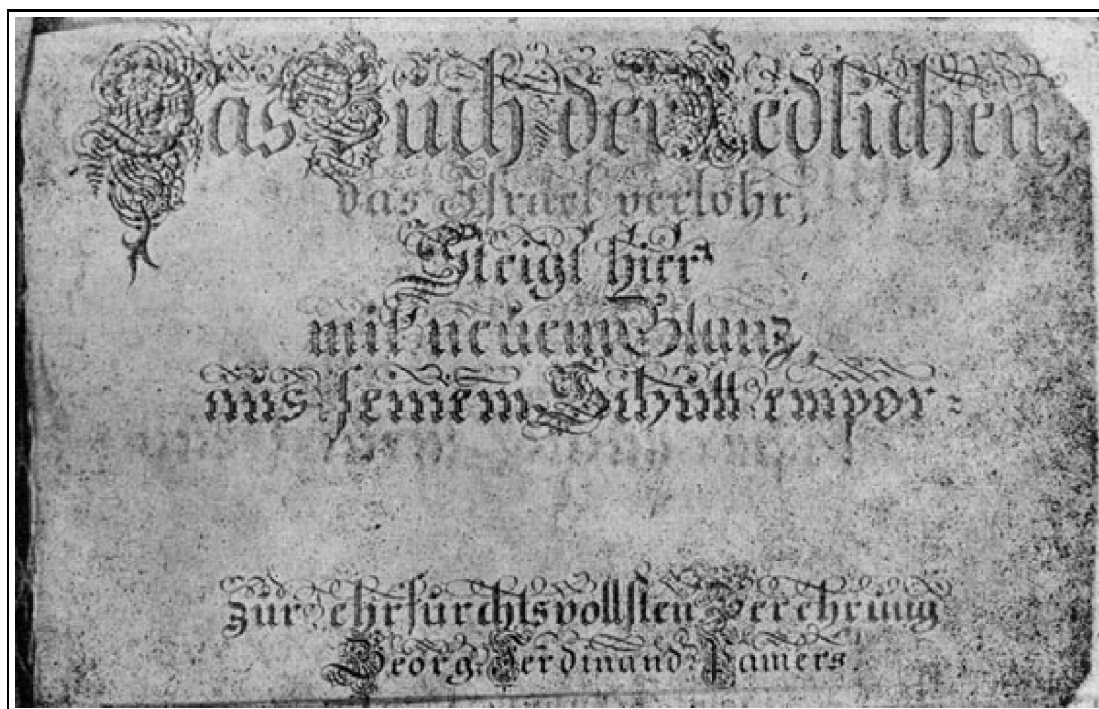 Das Buch der Redlichen,
das Israel verlohr,
Steigt hier
mit neuem Glanz,
aus seinem Schutt empor:
zur ehrfurchtsvollsten Verehrung
Georg Ferdinand Pamers.